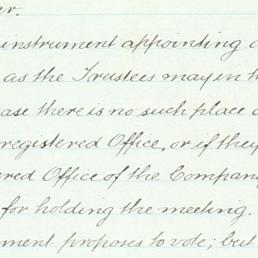 er.
instrument appointing a
as the Trustees may in
ase there is no such place
registered Office, or if they
red Office of the Company
for holding the meeting.
ment proposes to vote; but